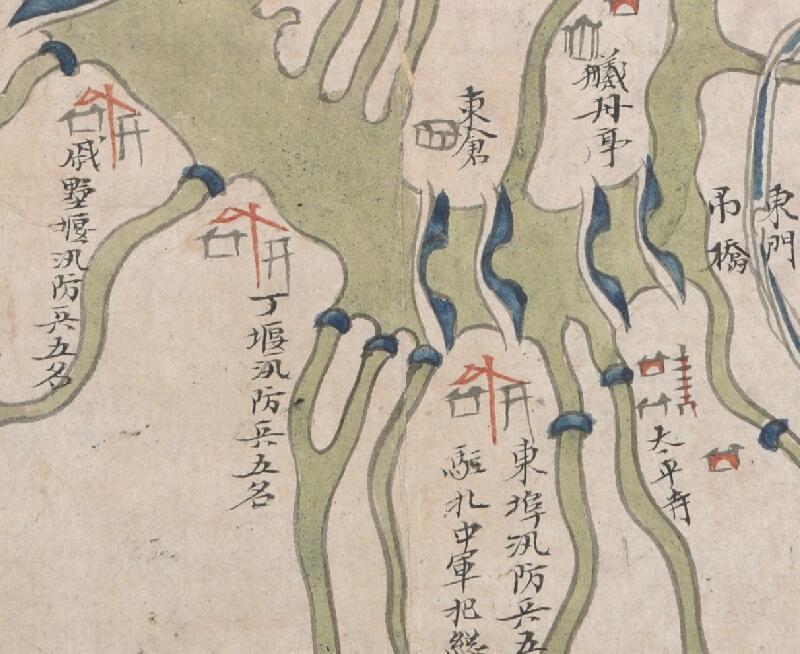 東門
吊橋
艤舟亭
太平寺
東倉
東埠汛防兵五
駐札中軍把総
丁堰汛防兵五名
戚墅堰汛防兵五名